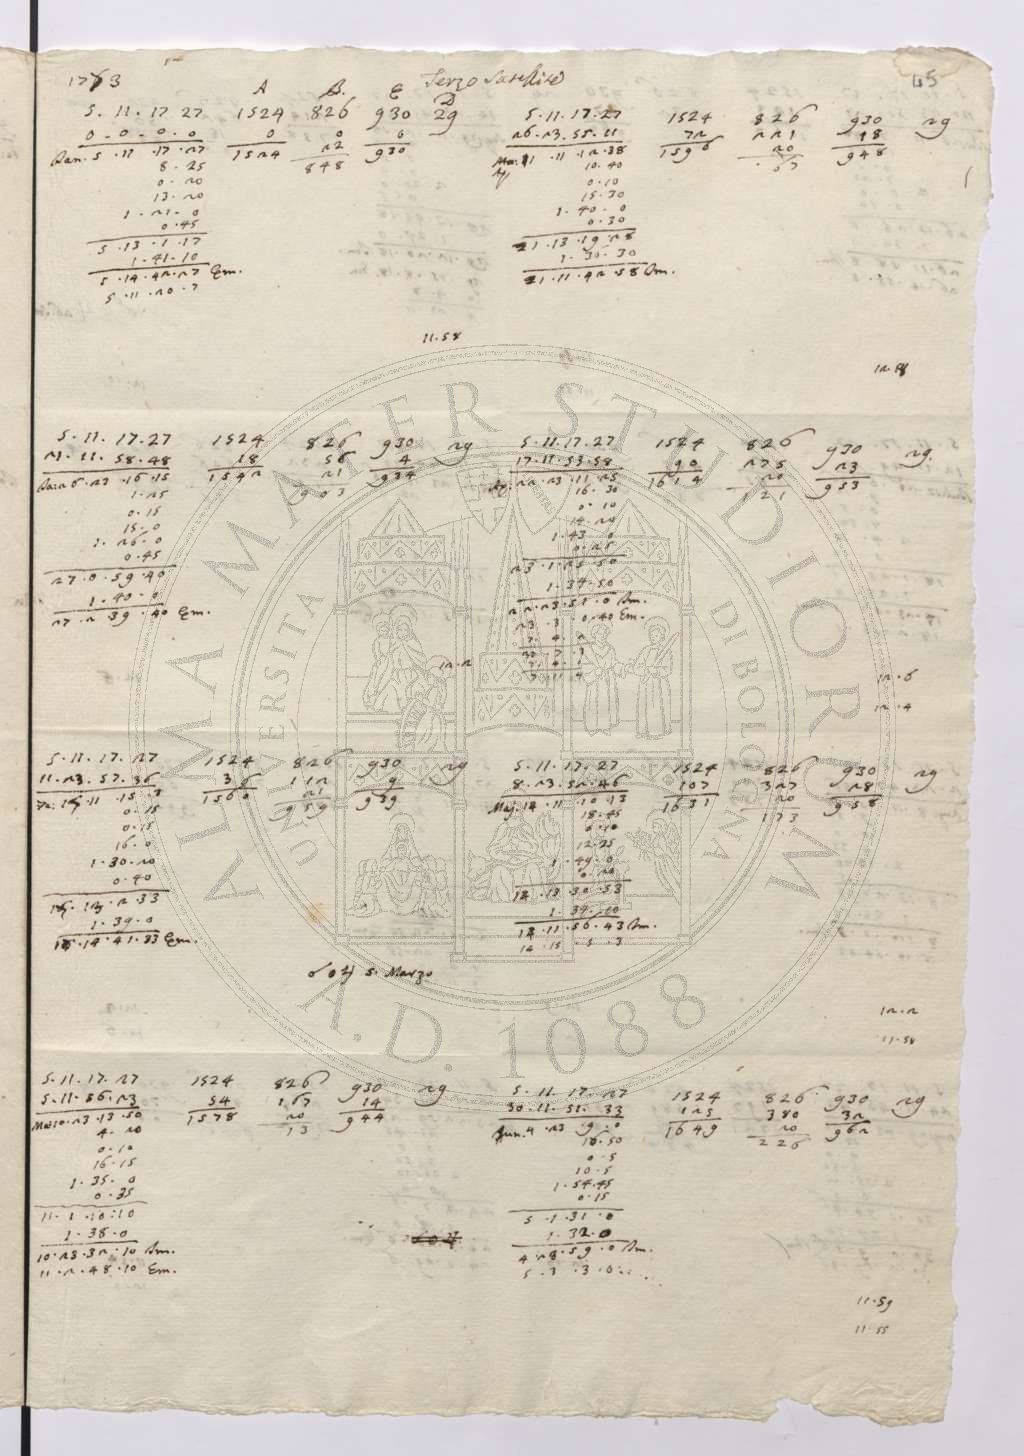 1763 Terzo Satellite 45
A B. C D
5. 11. 17 27 1524 826 930 29
0 . 0 . 0 . 0 0 0 0
5 . 11 . 17 . 27 1524 22 930
8 . 25 848
0 . 20
13 . 20
1 . 21 . 0
0 . 45
5 . 13 . 1 . 17
1 . 41 . 10
5 . 14 . 42 . 27 Em.
5 . 11 . 20 . 7
5 . 11 . 17 . 27 1524 826 930 29
26 . 23 . 55 . 11 72 221 18
11 . 12 . 38 1596 20 948
10 . 40 67
0 . 10
15 . 30
1 . 40 . 0
0 . 30
21 . 13 . 19 . 28
1 . 36 . 30
21 . 11 . 42 . 58 Im.
11 . 58
12 . 8
5 . 11 . 17 . 27 1524 826 930 29
21 . 11 . 58 . 48 18 56 4
26 . 23 . 16 . 15 1542 21 934
1 . 25 903
0 . 15
15 . 0
1 . 26 . 0
0 . 45
27 . 0 . 59 . 40
1 . 40 . 0
27 . 2 . 39 . 40 Em.
5 . 11 . 17 . 27 1524 826 930 29
17 . 11 . 53 . 58 90 275 23
22 . 23 . 11 . 25 1614 20 953
16 . 30 121
0 . 10
14 . 20
1 . 43 . 0
0 . 25
23 . 1 . 25 . 50
1 . 34 . 50
22 . 23 . 51 . 0 Im.
23 . 3 . 0 . 40 Em.
12 . 2
12 . 6
12 . 4
5 . 11 . 17 . 27 1524 826 930 29
11 . 23 . 57 . 36 36 112 9
11 . 15 . 3 1560 21 939
0 . 15 959
0 . 15
16 . 0
1 . 30 . 20
0 . 40
13 . 2 . 33
1 . 39 . 0
14 . 41 . 33 Em.
5 . 11 . 17 . 27 1524 826 930 29
8 . 23 . 52 . 46 107 327 28
Mag. 14 . 11 . 10 . 13 1631 20 958
18 . 45 173
0 . 10
12 . 25
1 . 49 . 0
0 . 20
13 . 30 . 53
1 . 34 . 10
11 . 56 . 43 Im.
14 . 15 . 5 . 3
☌ ☉ ♃ 5. Marzo
12 . 2
11 . 58
5 . 11 . 17 . 27 1524 826 930 29
5 . 11 . 56 . 23 54 167 14
10 . 23 . 13 . 50 1578 20 944
4 . 20 13
0 . 10
16 . 15
1 . 35 . 0
0 . 35
11 . 1 . 10 . 10
1 . 38 . 0
10 . 23 . 32 . 10 Im.
11 . 2 . 48 . 10 Em.
5 . 11 . 17 . 27 1524 826 930 29
30 . 11 . 51 . 33 125 380 32
Jun. 4 . 23 . 9 . 0 1649 20 962
16 . 50 226
0 . 5
10 . 5
1 . 54 . 45
0 . 15
5 . 1 . 31 . 0
1 . 32 . 0
4 . 23 . 59 . 0 Im.
5 . 3 . 3 . 0
11 . 59
11 . 55
ALMA MATER STUDIORUM
UNIVERSITA DI BOLOGNA
A.D. 1088